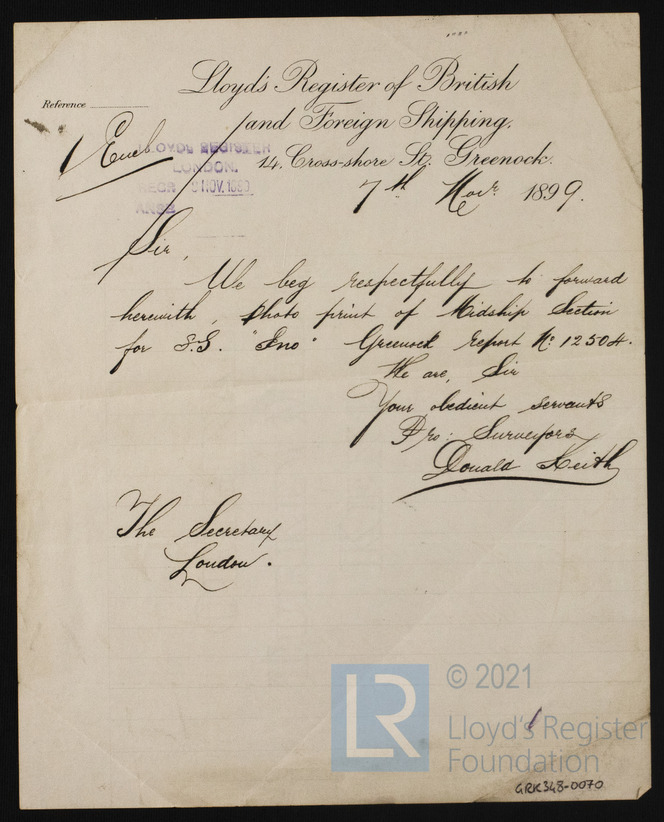 Lloyd's Register of British
and Foreign Shipping.
Reference
1 Encl
LLOYDS REGISTER
LONDON.
14. Cross-shore St. Greenock.
RECD 8 NOV. 1899
ANSD
7th Novr. 1899.
Sir,
We beg respectfully to forward
herewith, photo print of Midship Section
for S.S. "Ino" Greenock Report No. 12504.
We are, Sir
Your obedient servants
Pro: Surveyors
Donald Keith
The Secretary
London.
© 2021
LR
Lloyd's Register
Foundation
GRK348-0070